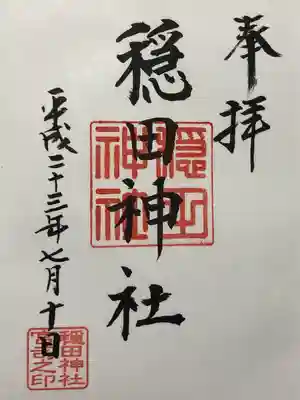 奉拝
穏田神社
平成二十三年七月十日
隠田神社
穏田神社宮司之印